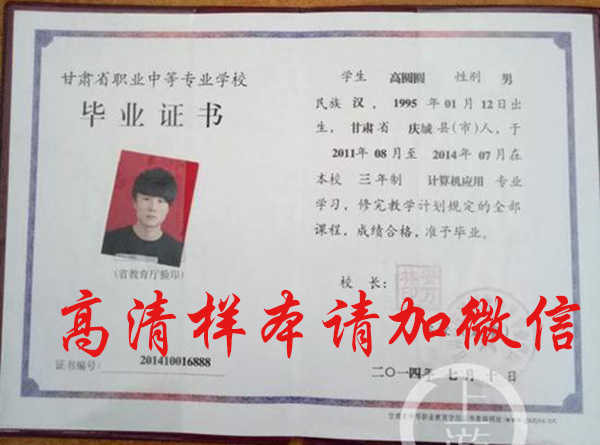 甘肃省职业中等专业学校
毕业证书
(省教育厅验印)
证书编号: 201410016888
学生 高圆圆 性别 男
民族 汉, 1995 年 01 月 12 日出
生, 甘肃省 庆城 县(市)人, 于
2011 年 08 月至 2014 年 07 月在
本校 三 年制 计算机应用 专业
学习, 修完教学计划规定的全部
课程, 成绩合格, 准予毕业。
校 长:
高清样本请加微信
二〇一四年 七 月 十 日
上游